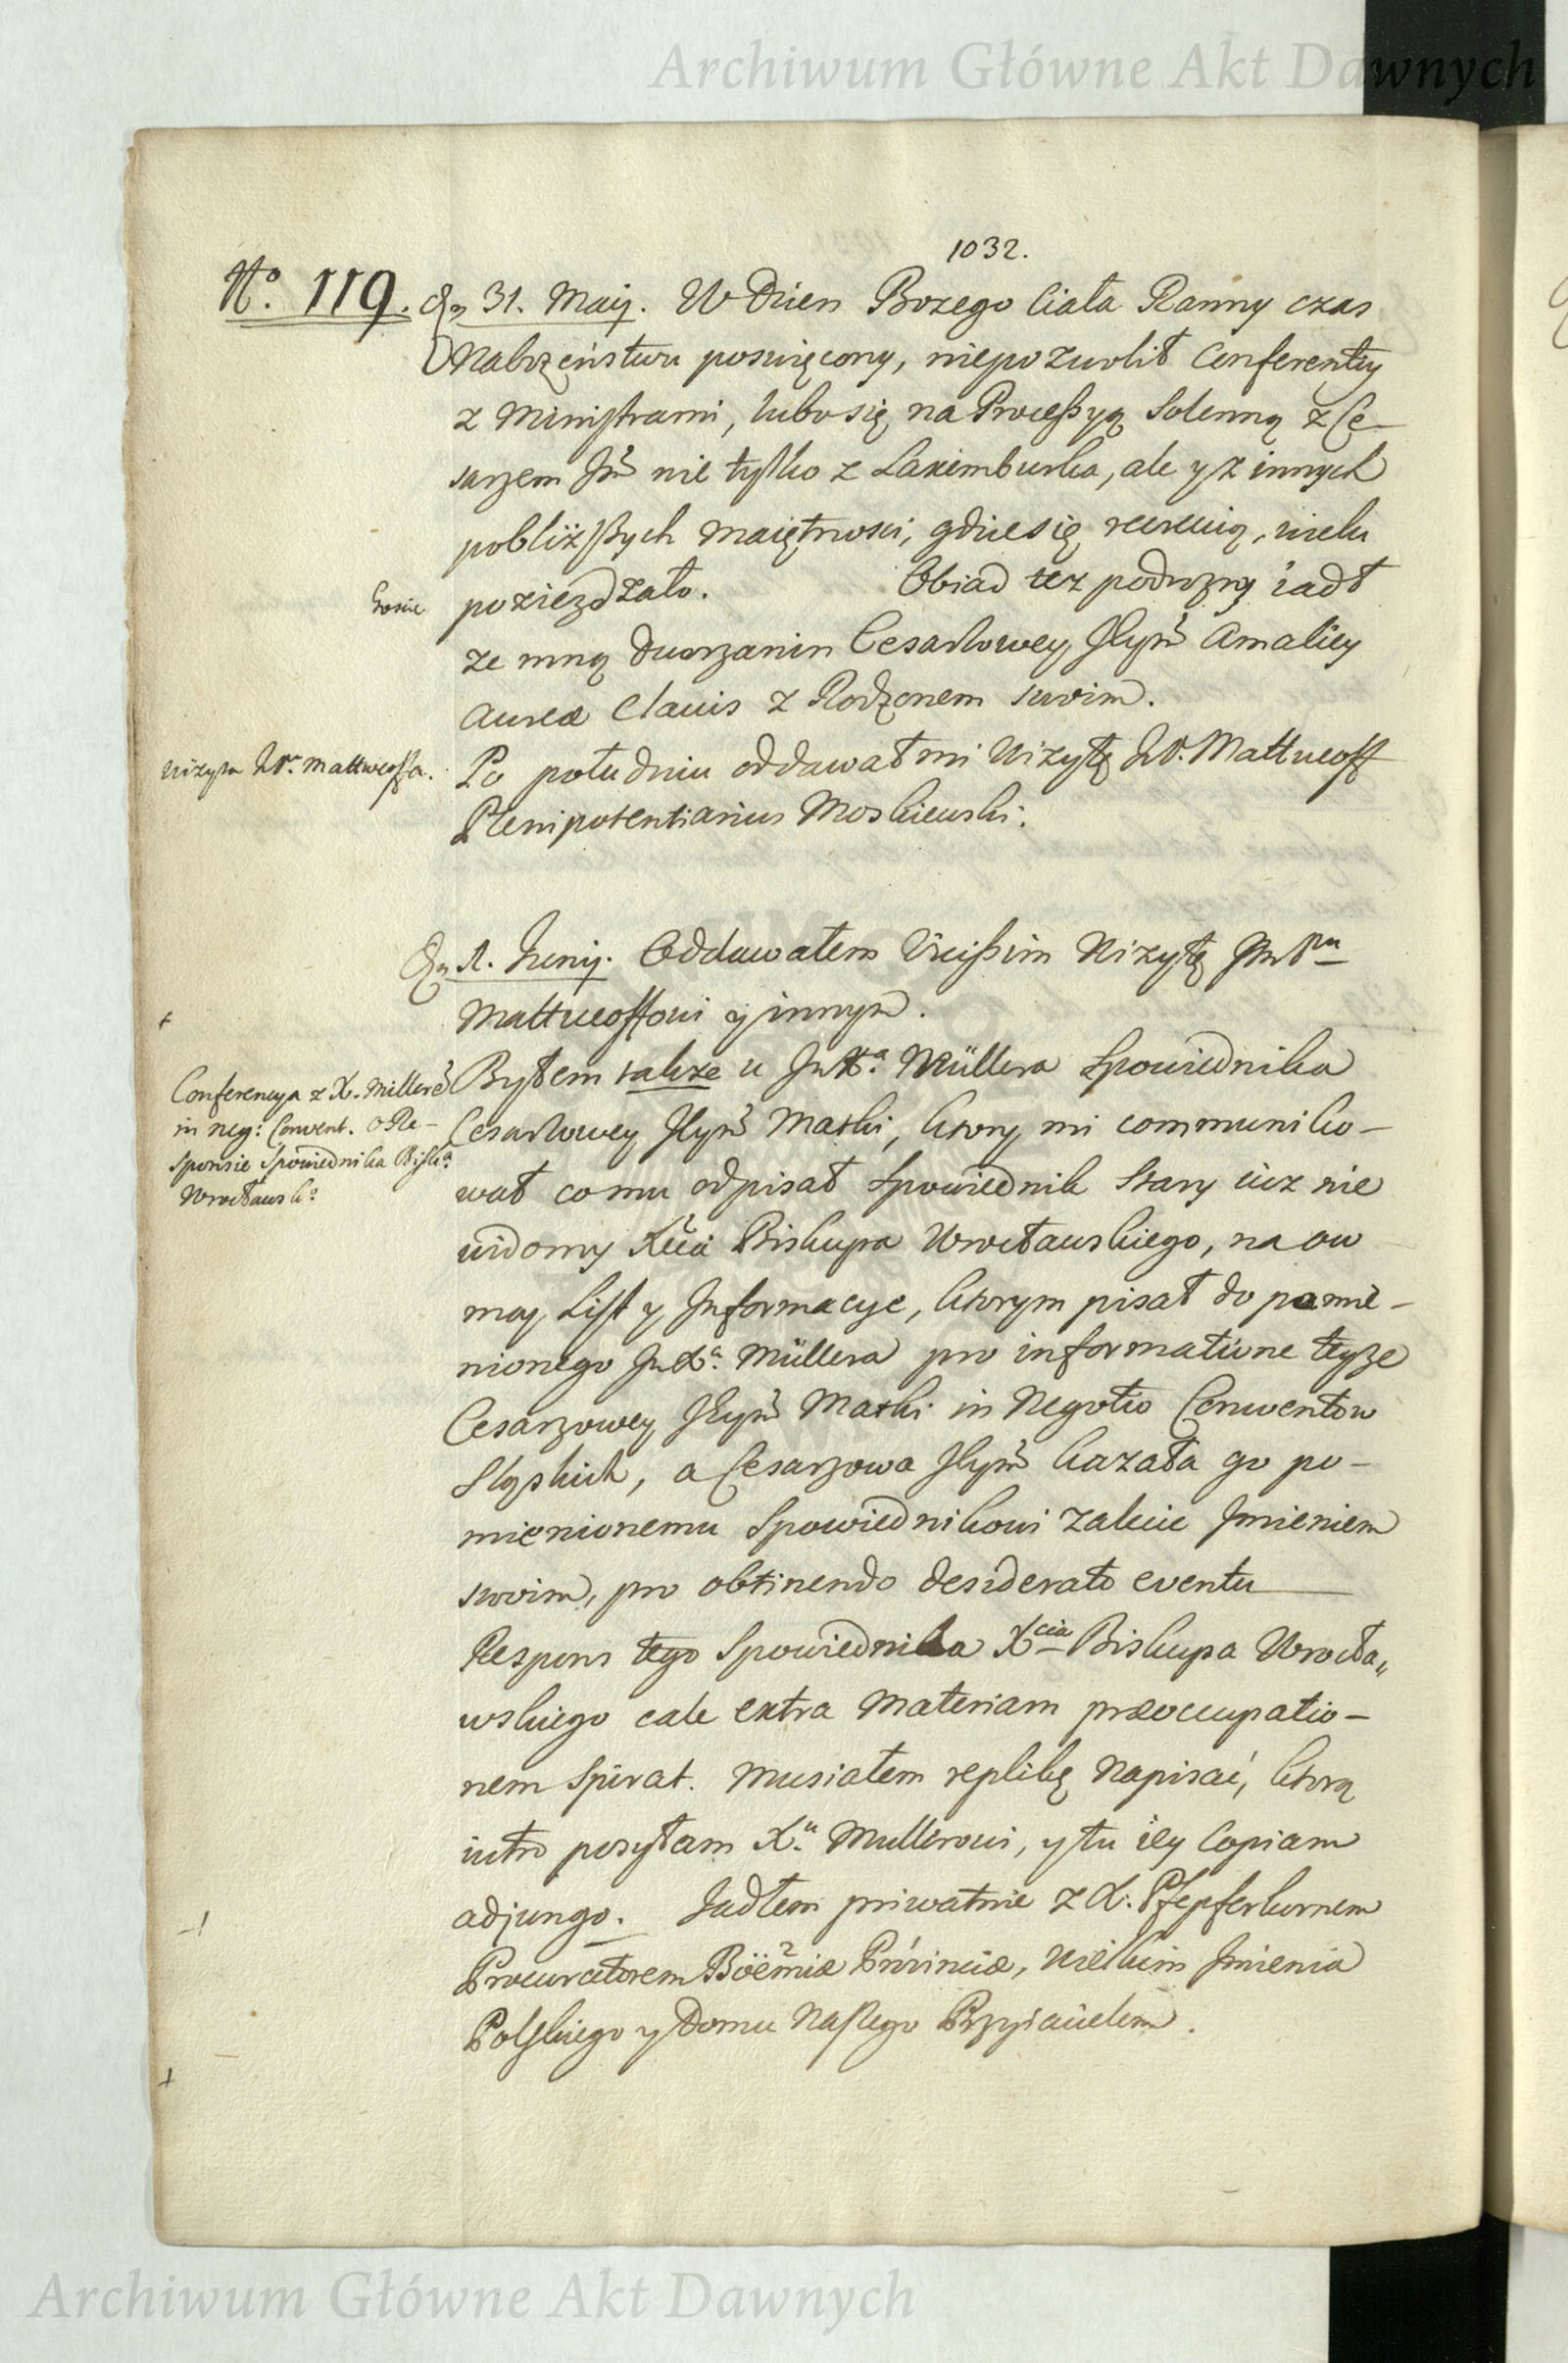 Archiwum Główne Akt Dawnych
1032.
No. 119. 31. Maij. W Dzien Bozego Ciała Ranny czas
Nabozęństwu poswięcony, niepozwolił Conferentiy
z Ministrami, lubo się na Processyą Solenną z Ce-
sarzem Jm nie tylko z Laxemburka, ale y z innych
pobliższych maiętnosci, gdzie się recreuią, wielu
poziezdzało. Obiad tez podrozny iadł
Goscie
ze mną Dworzanin Cesarzowey Amaliey
aureæ Clauis z Rodzonem swoim.
Wizyta Mattweoffa.
Po południu oddawał mi Wizytę Mattueoff
Plenipotentiarius Moskiewski.
1. Junij. Oddawałem Vicissim Wizytę
Mattueoffowi y innym.
Conferencya z X. Millerē
in neg: Convent. o Re-
sponsie Spowiednika Bisk:
Wrocławsk:
Byłem takze u Müllera Spowiednika
Cesarzowey Matki, ktory mi communiko-
wał co mu odpisał Spowiednik Stary iuz nie
widomy Xcia Biskupa Wrocławskiego, na ow
moy List y Informacye, ktorym pisał do pomie-
nionego Müllera pro informatione teyze
Cesarzowey Matki in Negotio Conwentow
Sląskich, a Cesarzowa kazała go po-
mienionemu Spowiednikowi zalecic Jmieniem
swoim, pro obtinendo desiderato eventu
Respons tego Spowiednika Xcia Biskupa Wrocła„
wskiego cale extra Materiam præoccupatio-
nem Spirat. Musiałem replikę Napisać, ktorą
iutro posyłam X. Mullerowi, y tu iey Copiam
adjungo. Jadłem priwatnie z X. Pfepferkornem
Procuratorem Böemiæ Prōvinciæ, Wielkim Jmienia
Polskiego y Domu Naszego Przyiacielem.
Archiwum Główne Akt Dawnych